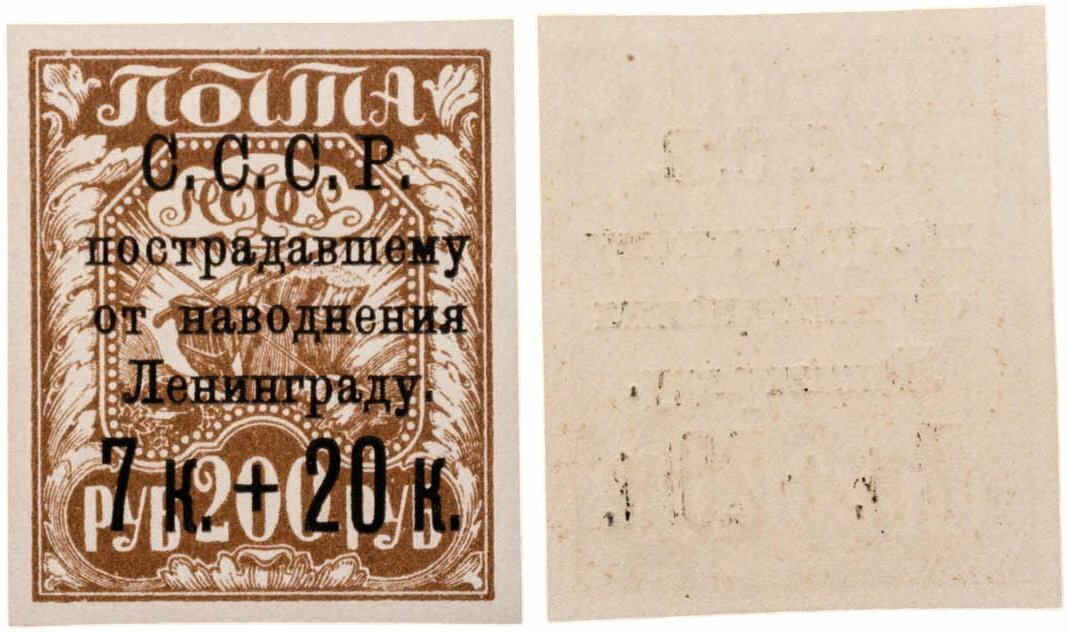 ПОЧТА
С.С.С.Р.
РСФСР
пострадавшему
от наводнения
Ленинграду.
7 к. + 20 к.
РУБ 200 РУБ